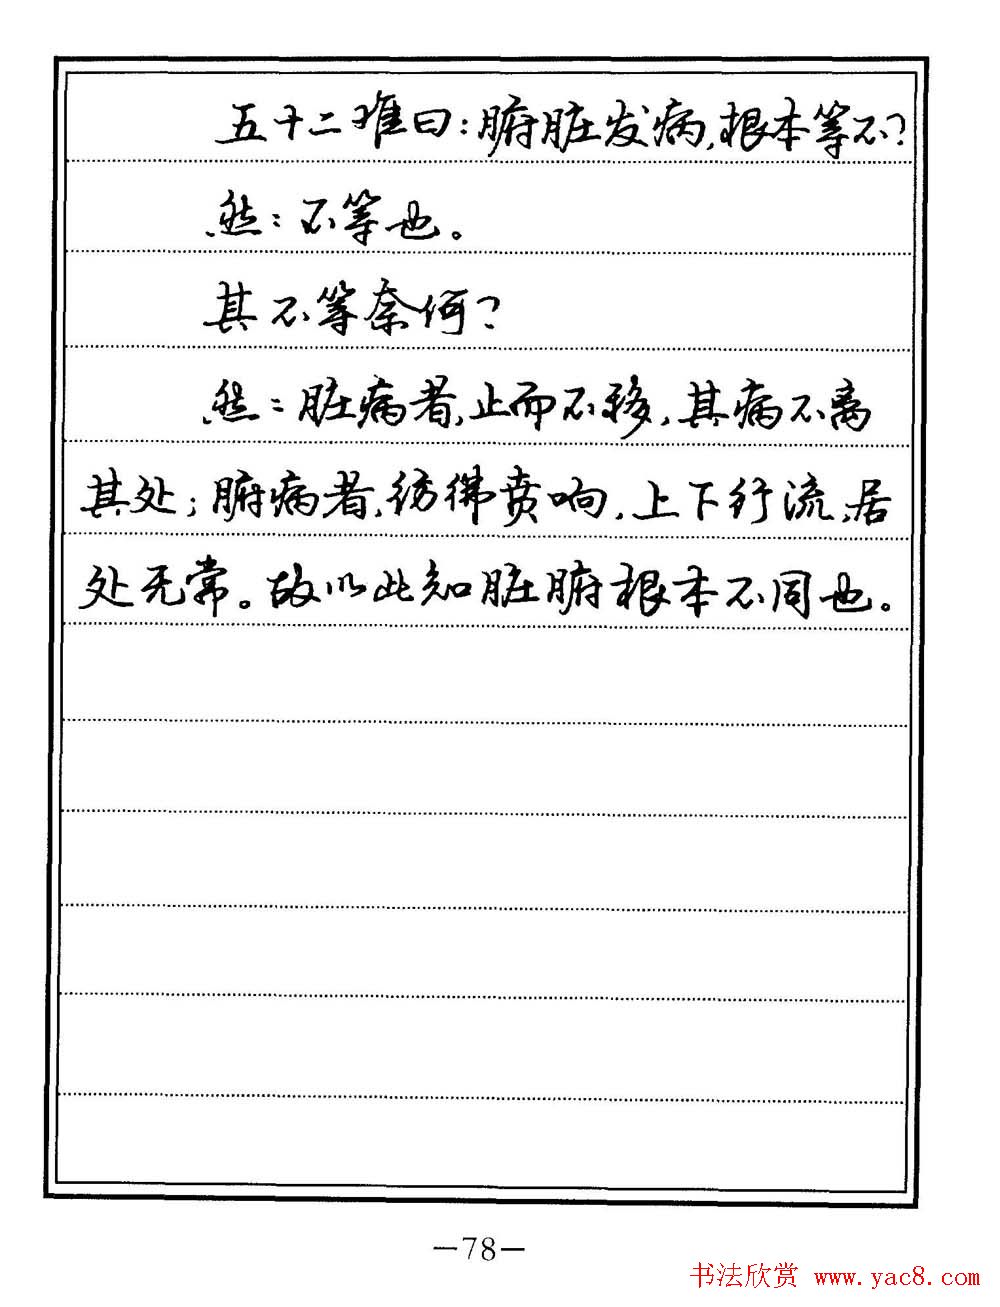 五十二难曰：腑脏发病，根本等不？
然：不等也。
其不等奈何？
然：脏病者，止而不移，其病不离
其处；腑病者，彷彿贲响，上下行流，居
处无常。故以此知脏腑根本不同也。
—78—
书法欣赏 www.yac8.com